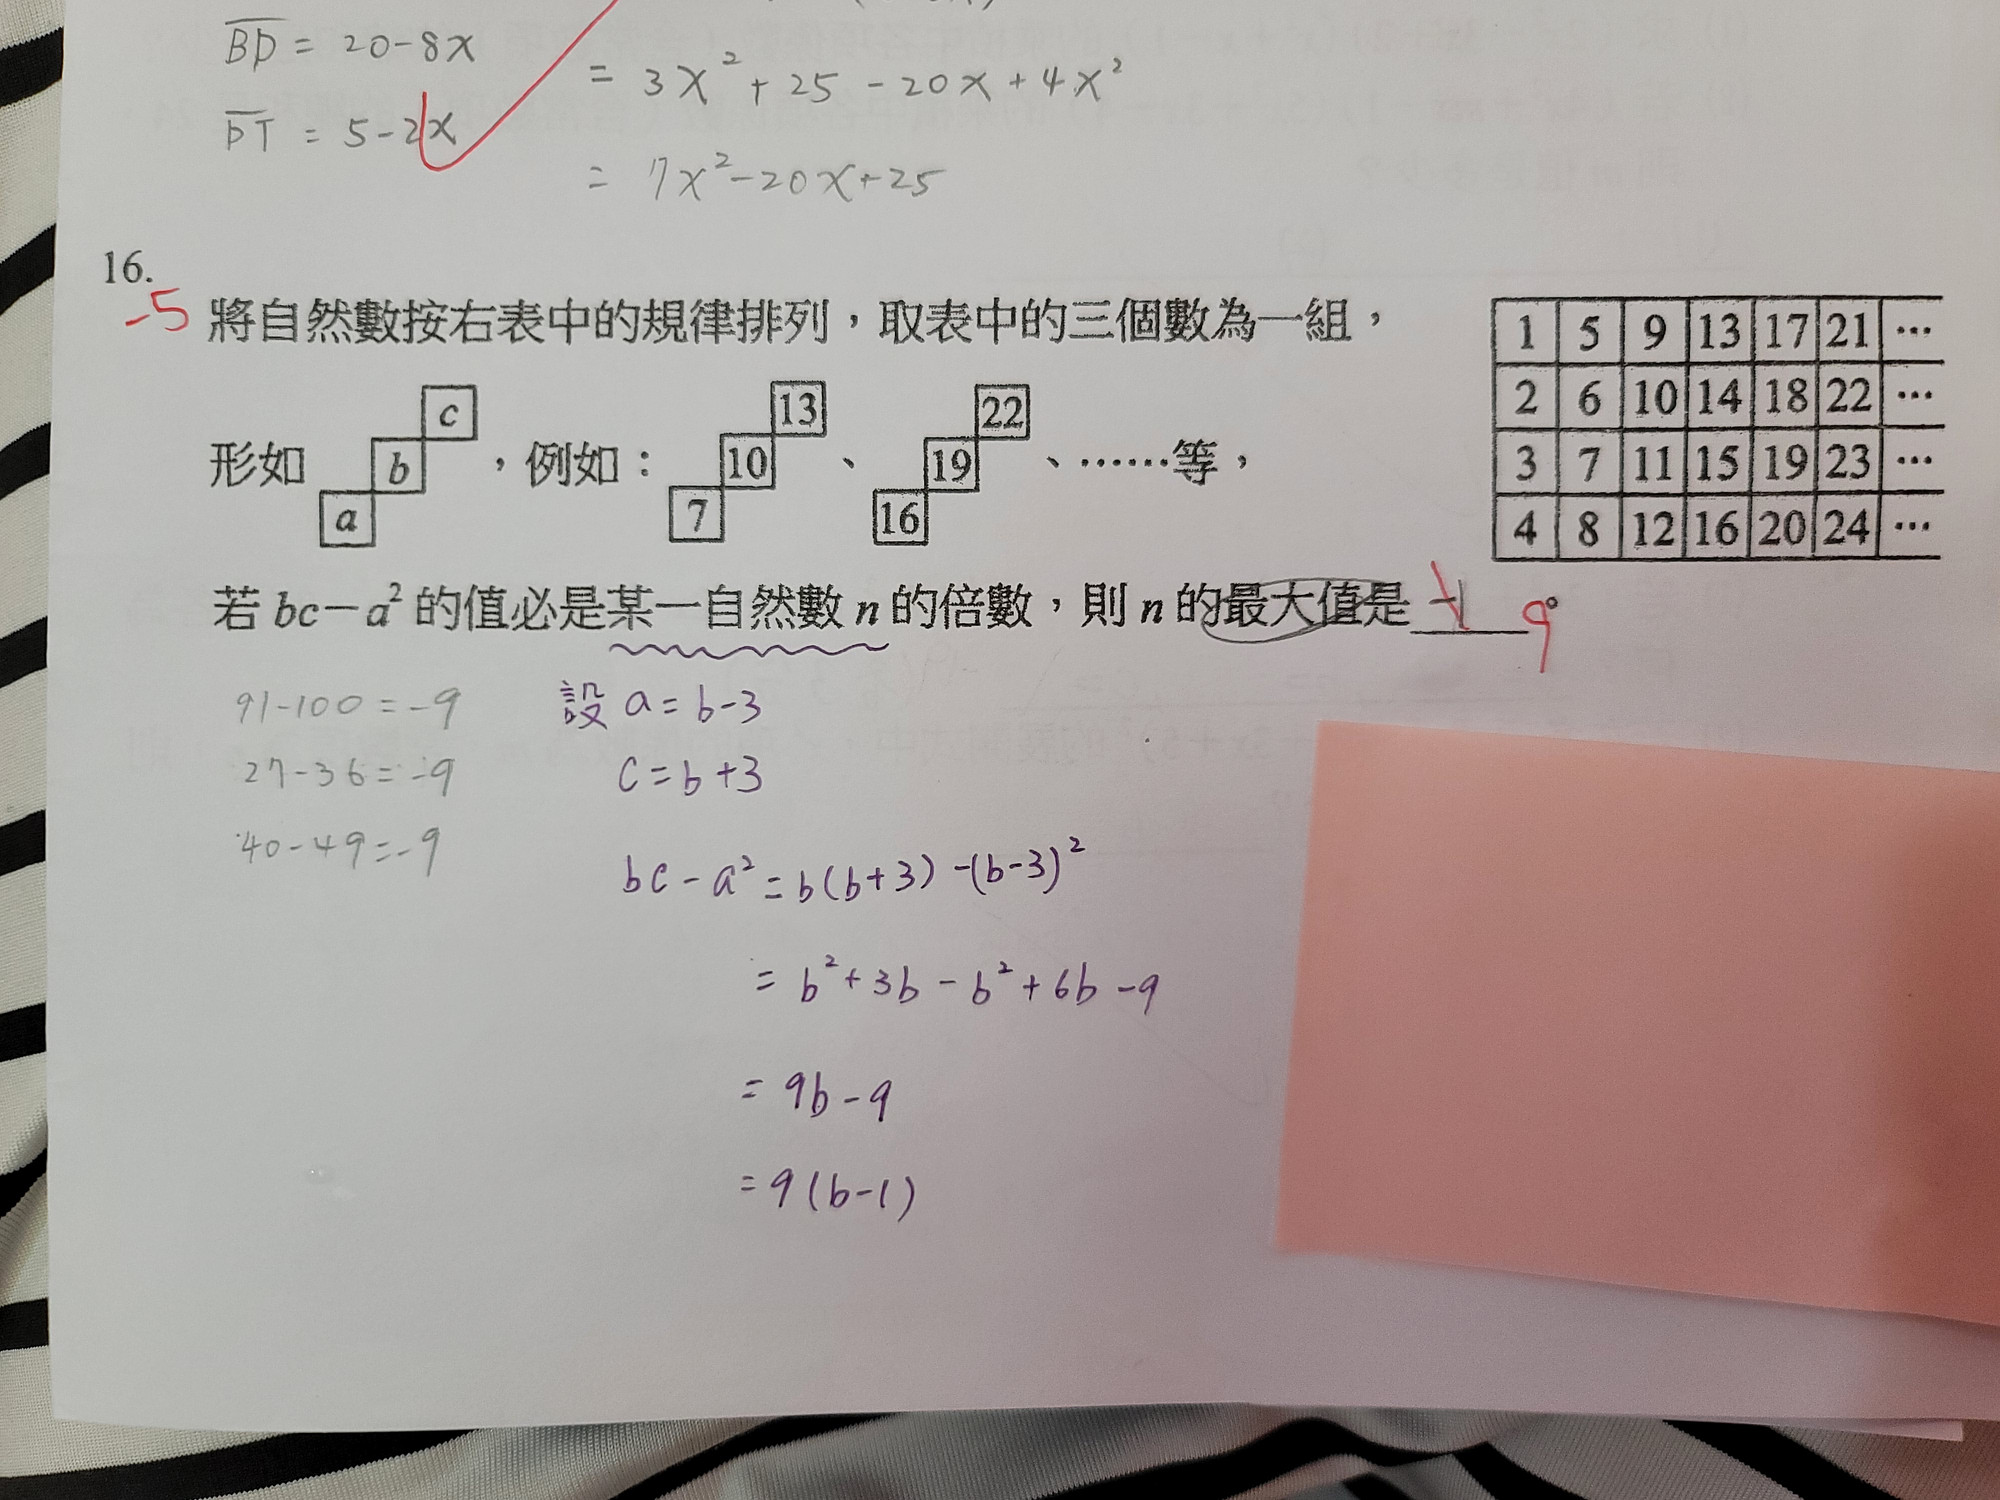 BD = 20-8x
= 3x² + 25 - 20x + 4x²
DT = 5-2x
= 7x²-20x+25
16.
-5
將自然數按右表中的規律排列，取表中的三個數為一組，
形如 a b c ，例如： 7 10 13 、 16 19 22 、……等，
1 5 9 13 17 21 …
2 6 10 14 18 22 …
3 7 11 15 19 23 …
4 8 12 16 20 24 …
若 bc－a² 的值必是某一自然數 n 的倍數，則 n 的最大值是 9。
91-100 = -9
27-36 = -9
40-49 = -9
設 a = b-3
c = b+3
bc - a² = b(b+3) -(b-3)²
= b² + 3b - b² + 6b - 9
= 9b - 9
= 9(b-1)